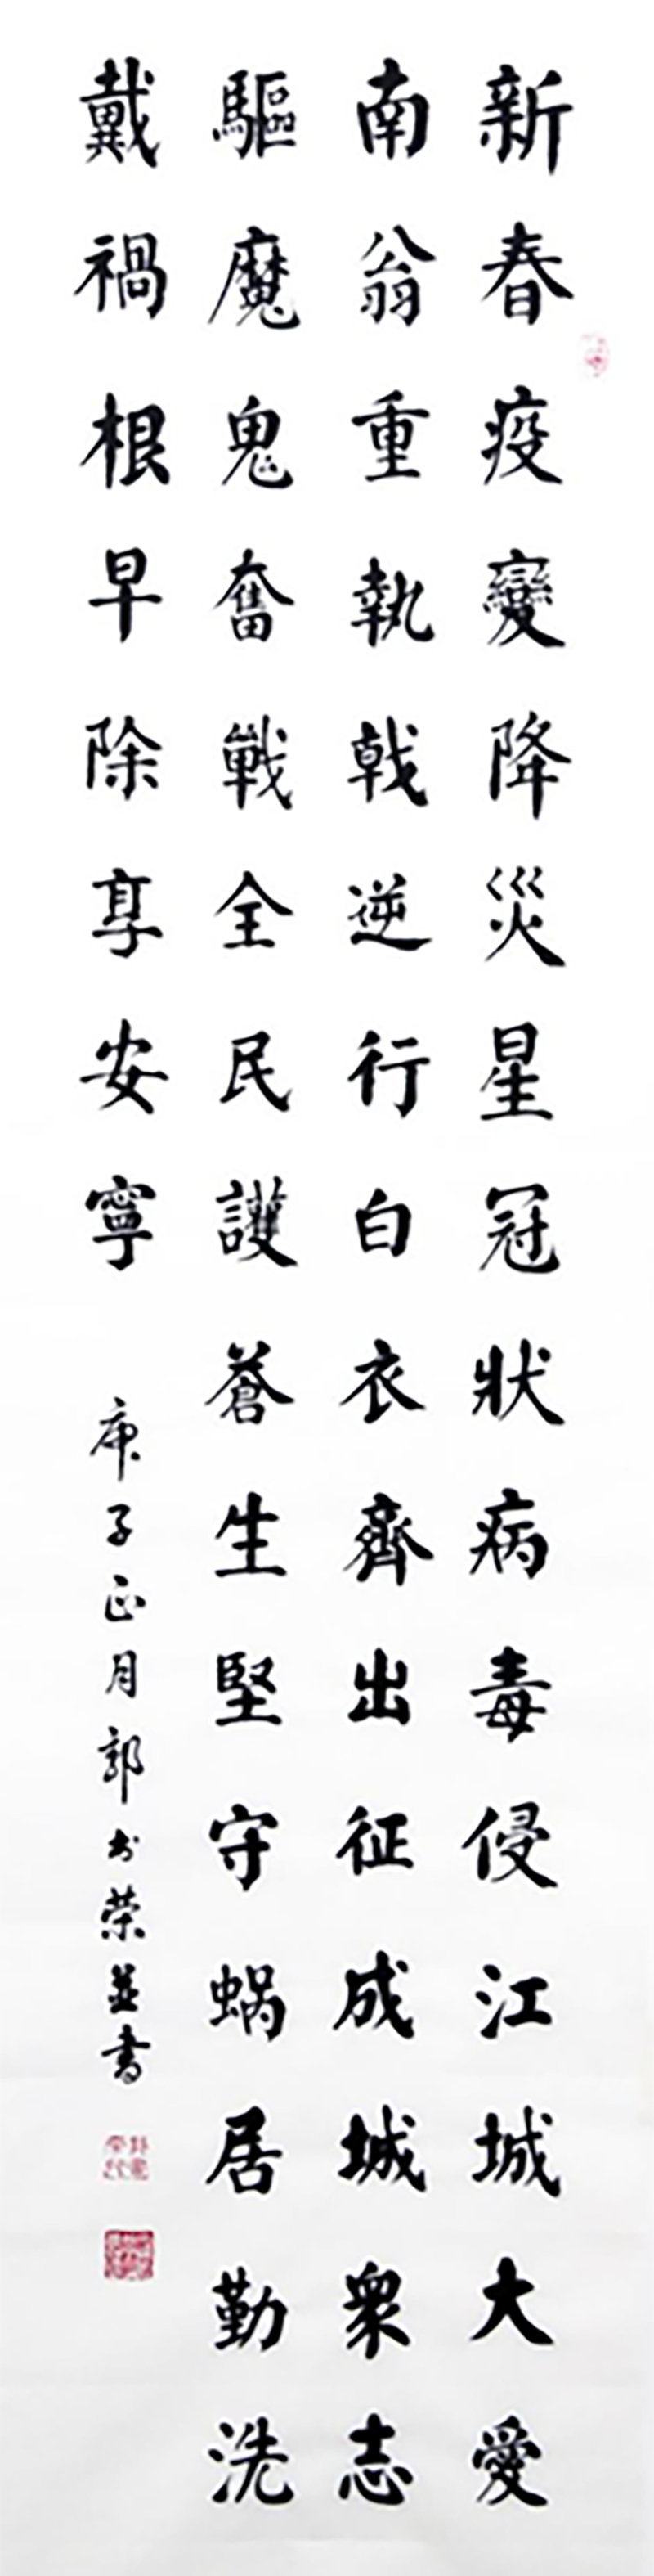 新春疫變降災星冠狀病毒侵江城大愛
南翁重執戟逆行白衣齊出征成城衆志
驅魔鬼奮戰全民護蒼生堅守蜗居勤洗
戴禍根早除享安寧
庚子正月郭书荣並書